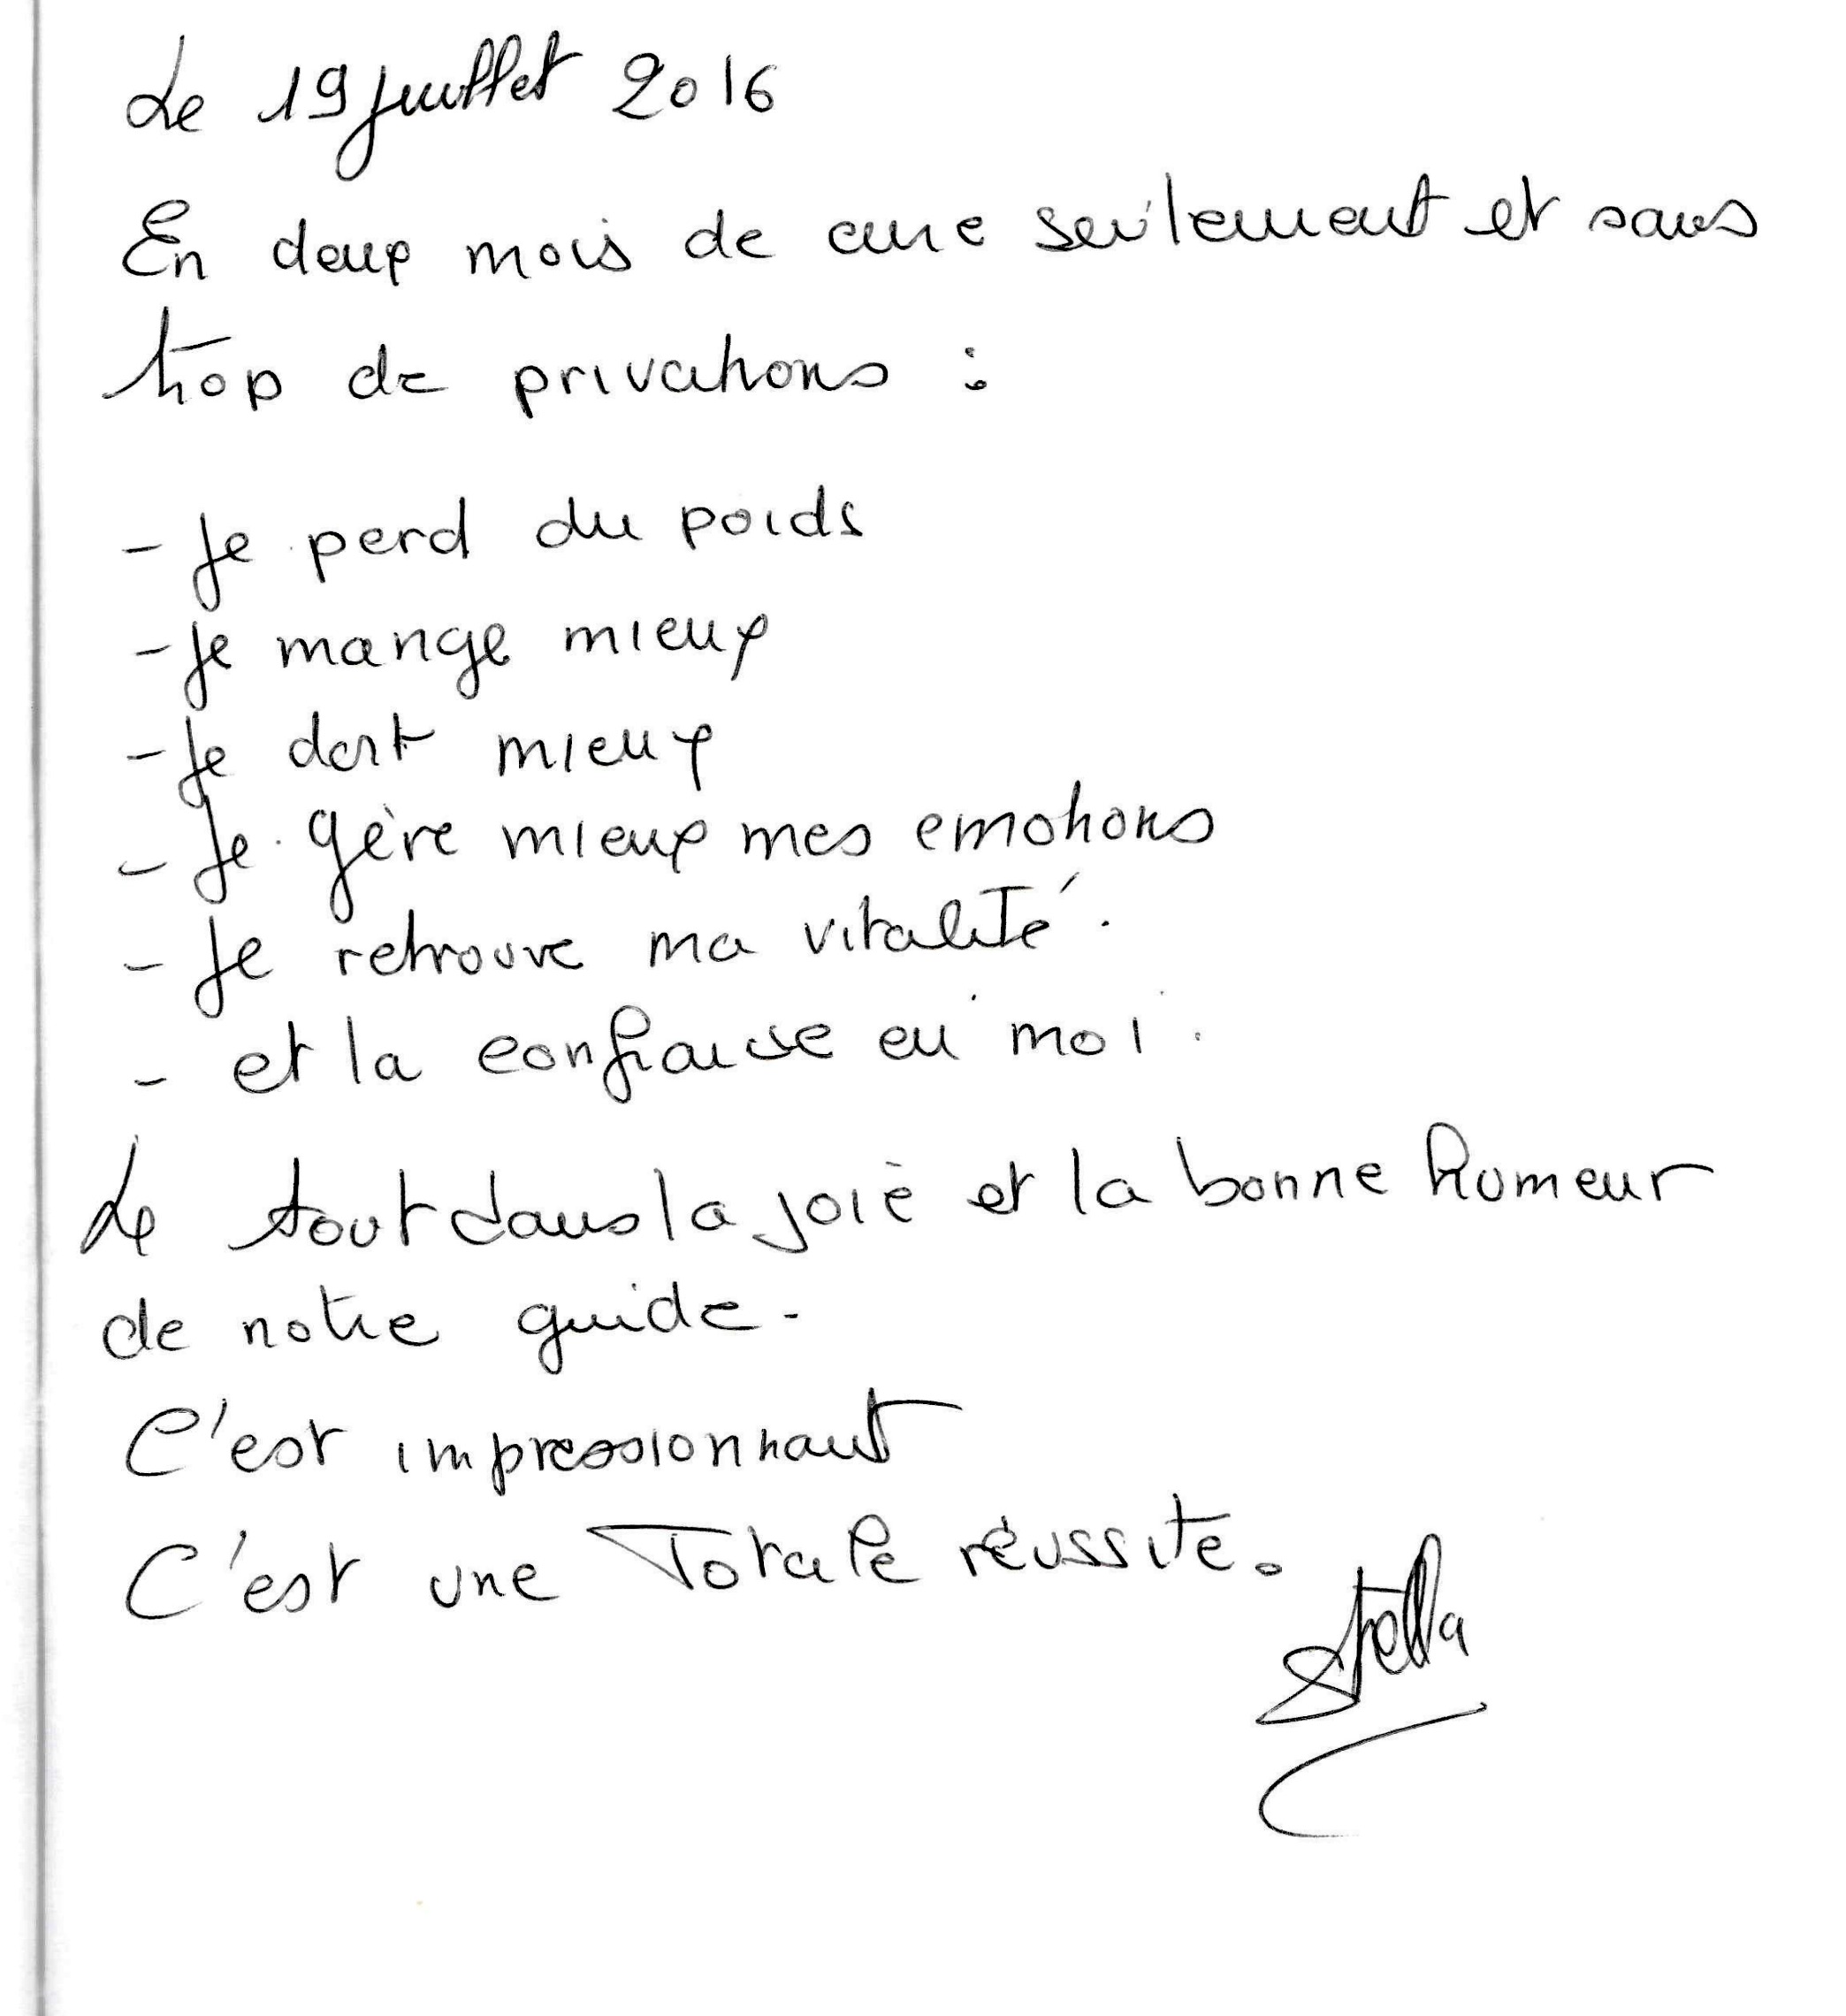 Le 19 juillet 2016
En deux mois de cure seulement et sans
trop de privations :
- Je perd du poids
- Je mange mieux
- Je dort mieux
- Je gère mieux mes emotions
- Je retrouve ma vitalité.
- et la confiance en moi.
Le tout dans la joie et la bonne humeur
de notre guide.
C'est impressionnant
C'est une Totale réussite.
Stella